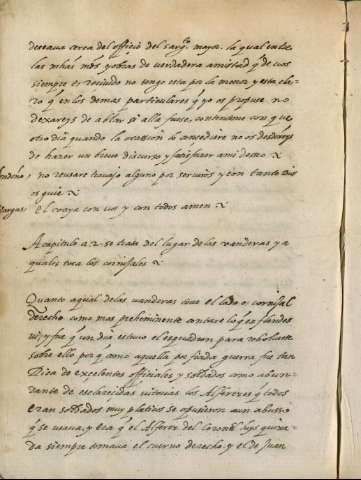 desseaua cerca del officio del sargto. mayor. la qual entre
las muchas mds y obras de verdadera amistad q̃ de vos
siempre he reciuido no tengo esta por la menor y esta cla-
ro q̃ en los demas particulares q̃ yo os propuse no
dexareys de ablar si alla fuese, contentome con q̃
otro dia quando la ocassion lo concediere no os desdeñeys
de hazer un breue discurso y satisfazer a mi deseo
Londoño, no rehusare trabajo alguno por seruiros y con tanto Dios
os guie
Vargas, el vaya con vos y con todos amen
A capitulo 22 se trata del lugar de las vanderas y a
quales toca los cornijales
Quanto a qual de las vanderas toca el lado o cornijal
derecho como mas preheminente contare lo q̃ en flandes
vi, y fue q̃ un dia estuuo el esquadron para reboluerse
sobre ello por q̃ como aquella porfiada guerra fue tan
Rica de excelentes officiales y soldados como abun-
dante de esclarecidas victorias los Alferezes q̃ todos
eran soldados muy platicos se opusieron a un abusso
q̃ se usaua, y era q̃ el Alferez del Coronel cuyo guion
da siempre tomaua el cuerno derecho y el de Juan